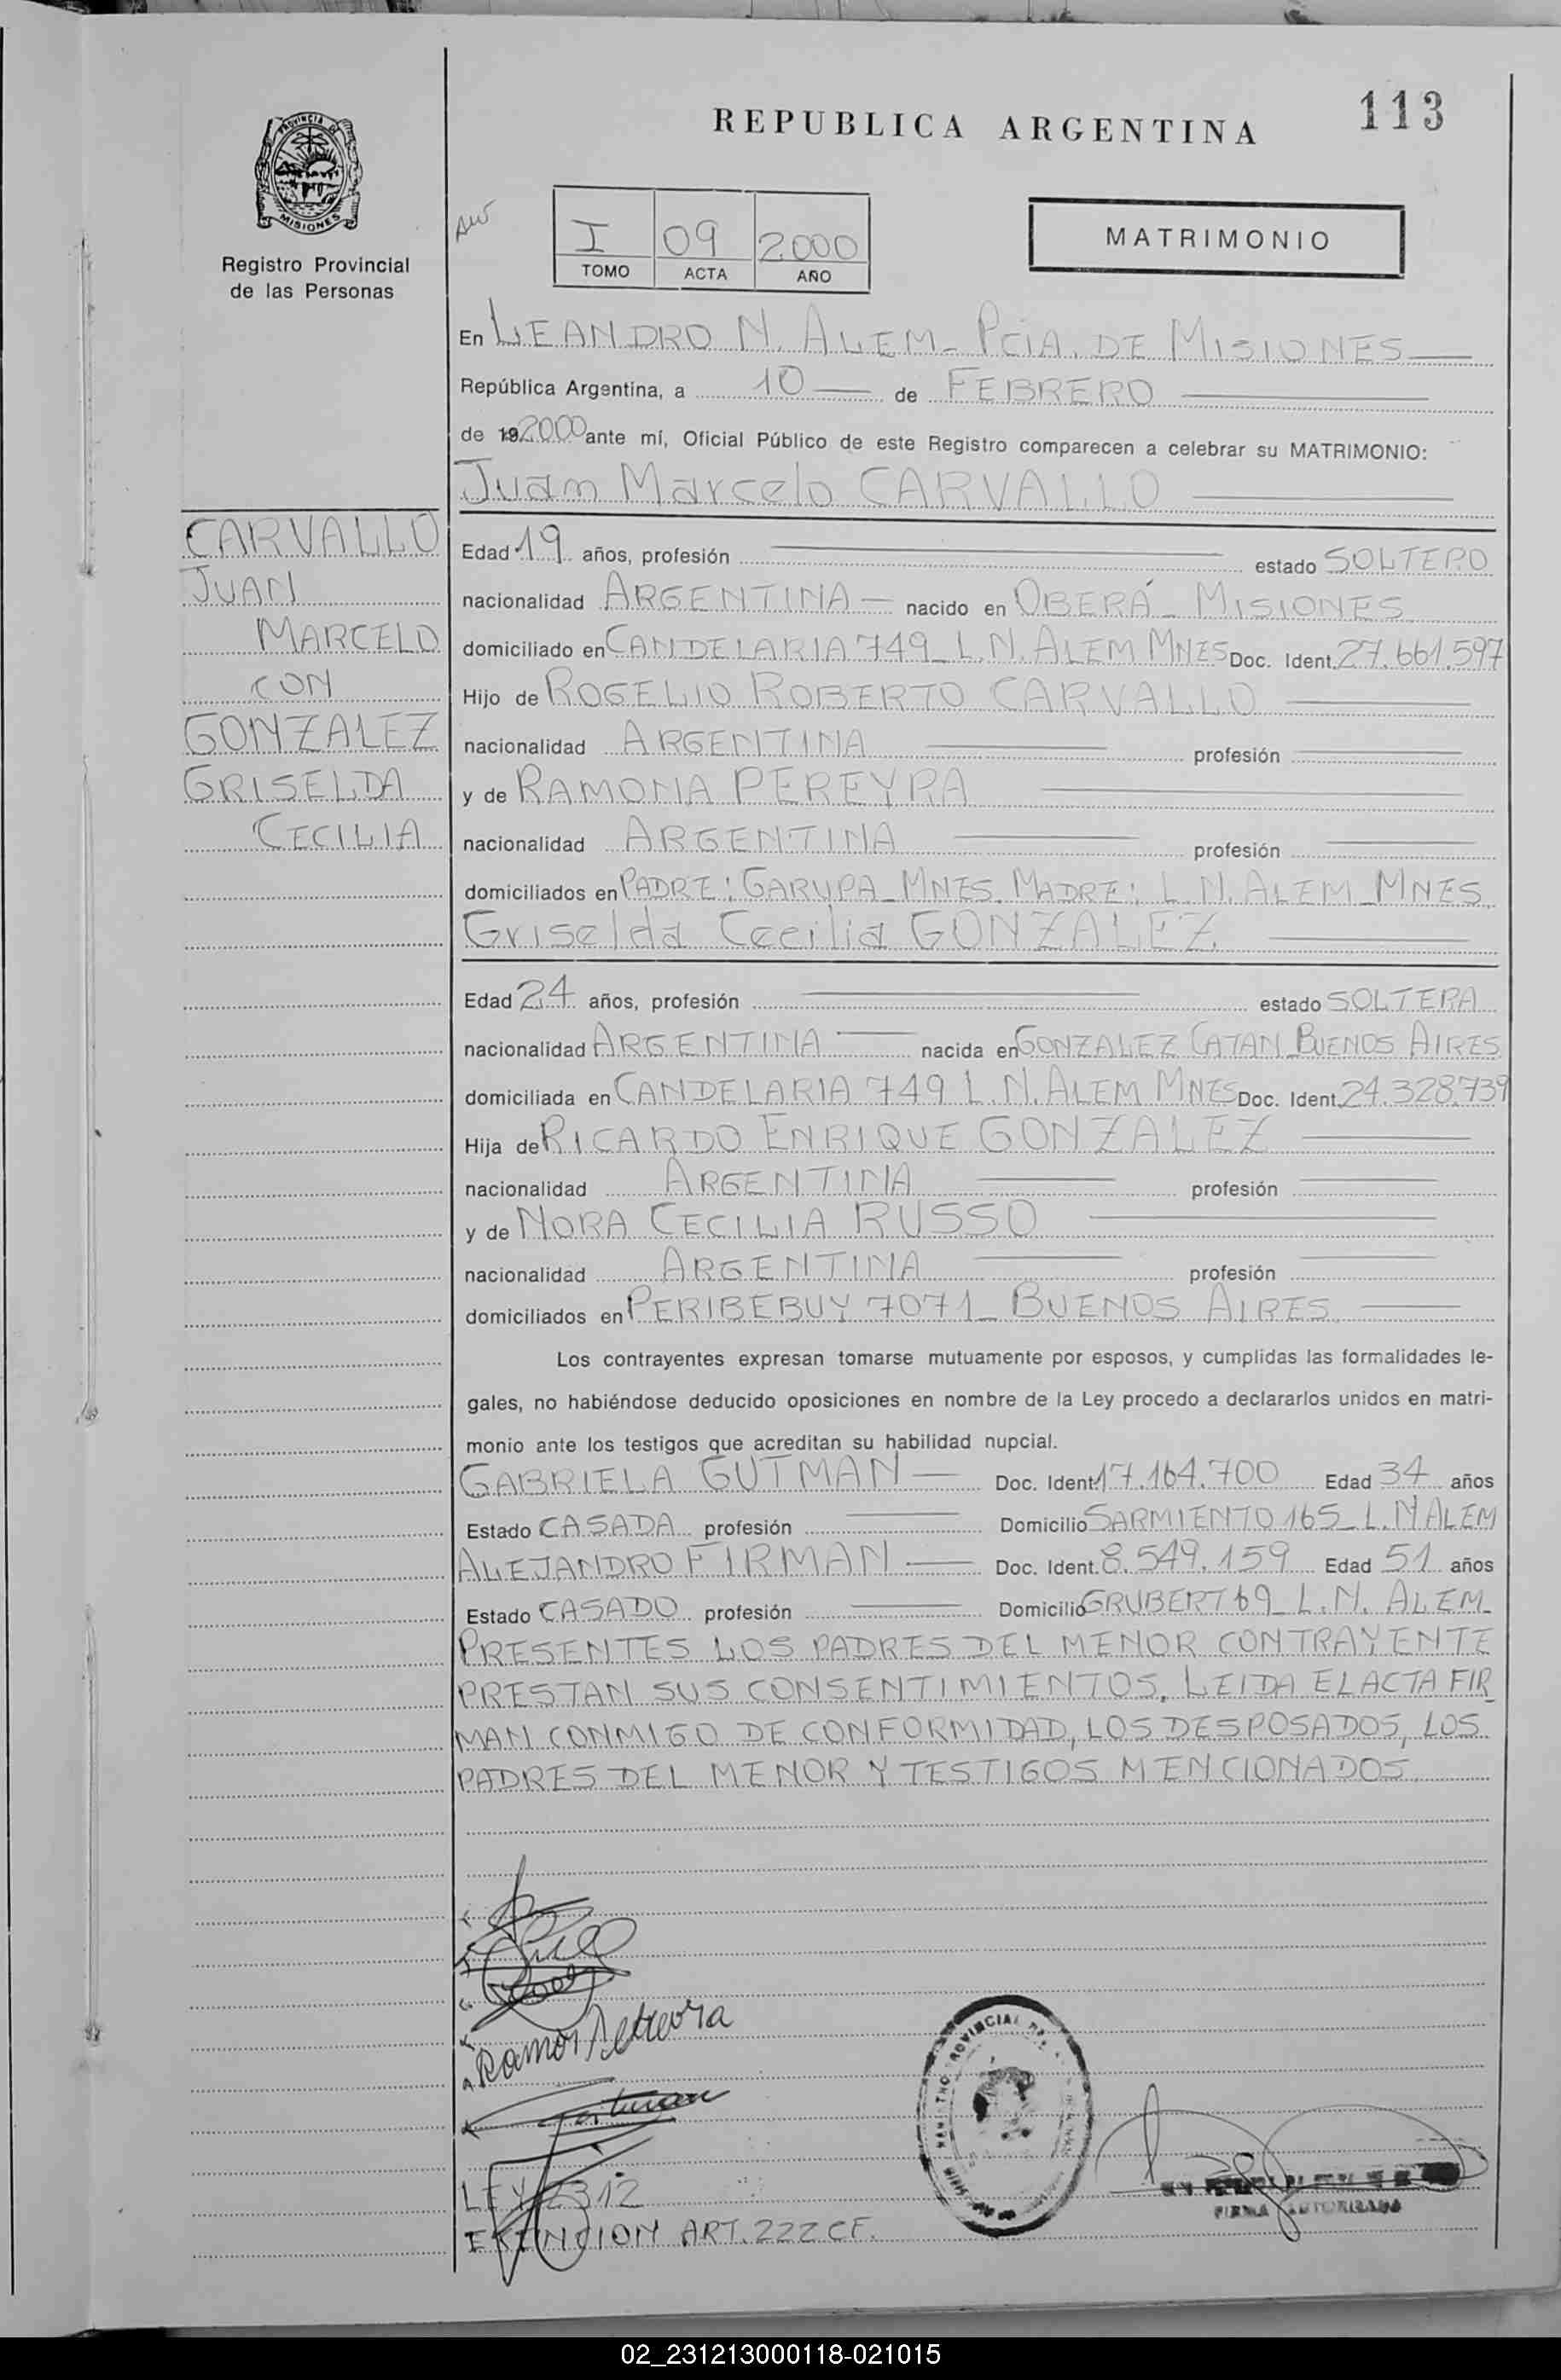 113
REPUBLICA ARGENTINA
PROVINCIA DE
MISIONES
Registro Provincial
de las Personas
I 09 2000
TOMO ACTA AÑO
MATRIMONIO
En LEANDRO N. ALEM - PCIA. DE MISIONES
República Argentina, a 10 de FEBRERO
de 19 2000 ante mí, Oficial Público de este Registro comparecen a celebrar su MATRIMONIO:
Juan Marcelo CARVALLO
CARVALLO
JUAN
MARCELO
CON
GONZALEZ
GRISELDA
CECILIA
Edad 19 años, profesión estado SOLTERO
nacionalidad ARGENTINA nacido en OBERÁ - MISIONES
domiciliado en CANDELARIA 749 - L.N. ALEM MNES Doc. Ident. 27.661.597
Hijo de ROGELIO ROBERTO CARVALLO
nacionalidad ARGENTINA profesión
y de RAMONA PEREYRA
nacionalidad ARGENTINA profesión
domiciliados en PADRE: GARUPA - MNES. MADRE: L.N. ALEM - MNES
Griselda Cecilia GONZALEZ
Edad 24 años, profesión estado SOLTERA
nacionalidad ARGENTINA nacida en GONZALEZ CATAN - BUENOS AIRES
domiciliada en CANDELARIA 749 L.N. ALEM MNES Doc. Ident. 24.328.739
Hija de RICARDO ENRIQUE GONZALEZ
nacionalidad ARGENTINA profesión
y de NORA CECILIA RUSSO
nacionalidad ARGENTINA profesión
domiciliados en PERIBEBUY 7071 - BUENOS AIRES
Los contrayentes expresan tomarse mutuamente por esposos, y cumplidas las formalidades le-
gales, no habiéndose deducido oposiciones en nombre de la Ley procedo a declararlos unidos en matri-
monio ante los testigos que acreditan su habilidad nupcial.
GABRIELA GUTMAN Doc. Ident. 17.164.700 Edad 34 años
Estado CASADA profesión Domicilio SARMIENTO 165 - L.N ALEM
ALEJANDRO FIRMAN Doc. Ident. 8.549.159 Edad 51 años
Estado CASADO profesión Domicilio GRUBERT 69 - L.N. ALEM
PRESENTES LOS PADRES DEL MENOR CONTRAYENTE
PRESTAN SUS CONSENTIMIENTOS. LEIDA EL ACTA FIR
MAN CONMIGO DE CONFORMIDAD, LOS DESPOSADOS, LOS
PADRES DEL MENOR Y TESTIGOS MENCIONADOS.
LEY 2312
EXENCION ART. 222 CF.
FIRMA AUTORIZADA
02_231213000118-021015